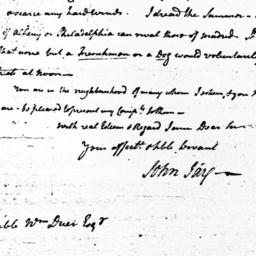 scarce any hard winds. I dread the Summer
of Albany or Philadelphia can rival those of Madrid.
that none but a Frenchman or a Dog would voluntarily
at Noon
You are in the neighbourhood of many whom I esteem, & you
are - be pleased to present my Compts. to them
with real Esteem & Regard I am Dear Sir
Your affectte. & hble. Servant
John Jay
Wm Duer Esqr